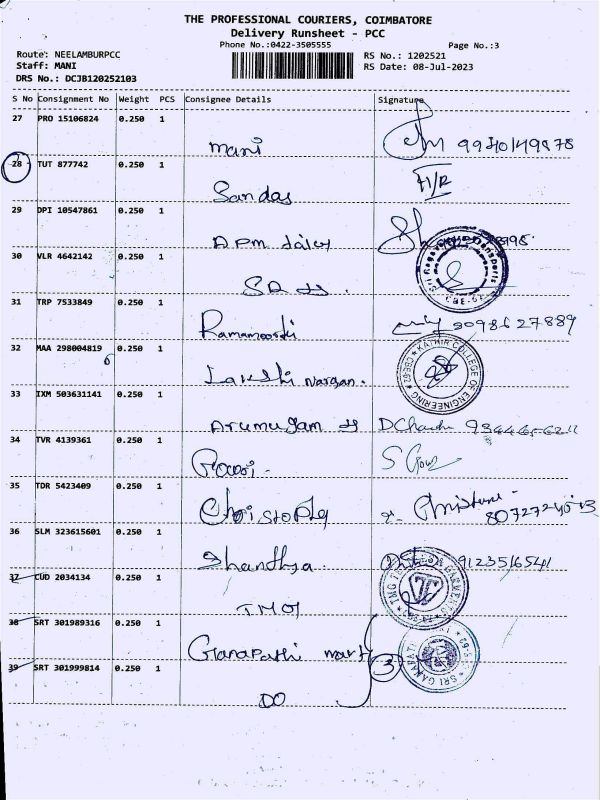 THE PROFESSIONAL COURIERS, COIMBATORE
Delivery Runsheet - PCC
Phone No.:0422-3505555 Page No.:3
Route: NEELAMBURPCC RS No.: 1202521
Staff: MANI RS Date: 08-Jul-2023
DRS No.: DCJB120252103
S No Consignment No Weight PCS Consignee Details Signature
27 PRO 15106824 0.250 1
mani 9940149878
28 TUT 877742 0.250 1
Sandas
29 DPI 10547861 0.250 1
30 VLR 4642142 0.250 1
CBE-62
31 TRP 7533849 0.250 1
Ramamoorthi 9098627889
32 MAA 298004819 0.250 1
KATHIR COLLEGE OF ENGINEERING CBE-62
Lakshi Nargan.
33 IXM 503631141 0.250 1
Arumugam
34 TVR 4139361 0.250 1
Gowri.
35 TDR 5423409 0.250 1
36 SLM 323615601 0.250 1
Shandhya. 9123516541
37 CUD 2034134 0.250 1
TMG
38 SRT 301989316 0.250 1
Ganapathi mart 3
SRI GANAPATI
39 SRT 301999814 0.250 1
DO